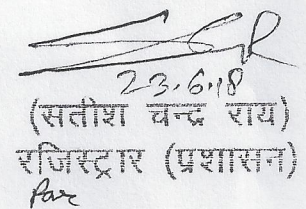 23.6.18
(सतीश चन्द्र राय)
रजिस्ट्रार (प्रशासन)